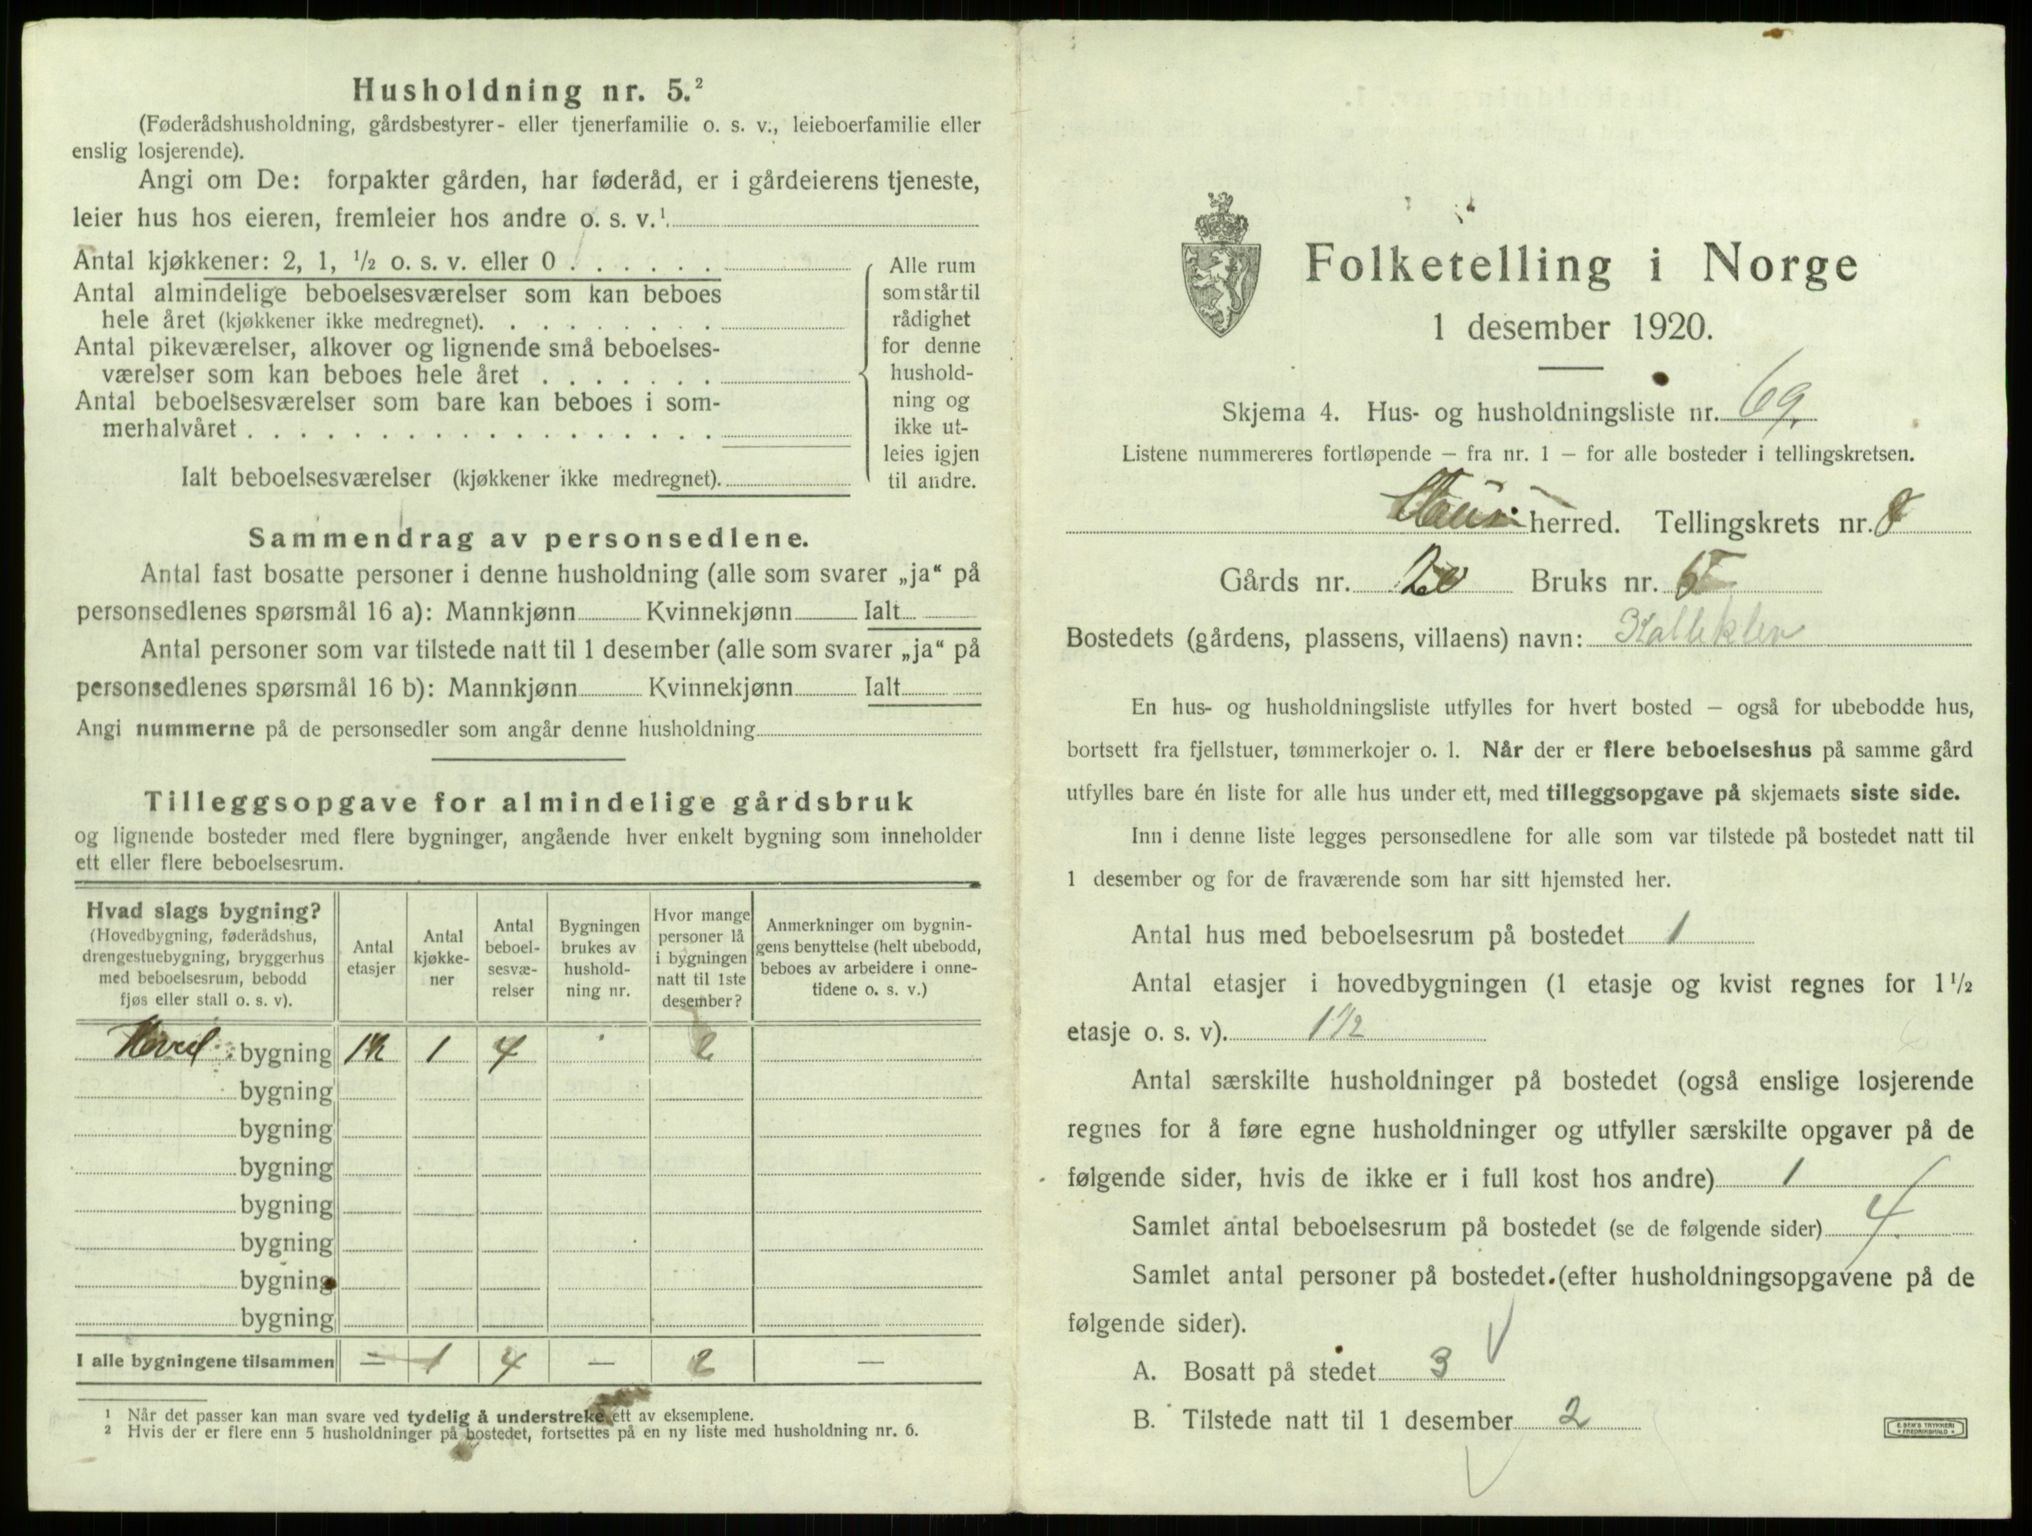 Husholdning nr. 5.²
(Føderådshusholdning, gårdsbestyrer- eller tjenerfamilie o. s. v., leieboerfamilie eller
enslig losjerende).
Angi om De: forpakter gården, har føderåd, er i gårdeierens tjeneste,
leier hus hos eieren, fremleier hos andre o. s. v.¹
Antal kjøkkener: 2, 1, ½ o. s. v. eller 0
Antal almindelige beboelsesværelser som kan beboes
hele året (kjøkkener ikke medregnet).
Antal pikeværelser, alkover og lignende små beboelses-
værelser som kan beboes hele året
Antal beboelsesværelser som bare kan beboes i som-
merhalvåret
Ialt beboelsesværelser (kjøkkener ikke medregnet).
Alle rum
som står til
rådighet
for denne
hushold-
ning og
ikke ut-
leies igjen
til andre.
Sammendrag av personsedlene.
Antal fast bosatte personer i denne husholdning (alle som svarer „ja“ på
personsedlenes spørsmål 16 a): Mannkjønn Kvinnekjønn Ialt
Antal personer som var tilstede natt til 1 desember (alle som svarer „ja“ på
personsedlenes spørsmål 16 b): Mannkjønn Kvinnekjønn Ialt
Angi nummerne på de personsedler som angår denne husholdning
Tilleggsopgave for almindelige gårdsbruk
og lignende bosteder med flere bygninger, angående hver enkelt bygning som inneholder
ett eller flere beboelsesrum.
Hvad slags bygning?
(Hovedbygning, føderådshus,
drengestuebygning, bryggerhus
med beboelsesrum, bebodd
fjøs eller stall o. s. v).
Antal
etasjer
Antal
kjøkke-
ner
Antal
beboel-
sesvæ-
relser
Bygningen
brukes av
hushold-
ning nr.
Hvor mange
personer lå
i bygningen
natt til 1ste
desember?
Anmerkninger om bygnin-
gens benyttelse (helt ubebodd,
beboes av arbeidere i onne-
tidene o. s. v.)
Hoved bygning 1½ 1 4 2
bygning
bygning
bygning
bygning
bygning
bygning
bygning
I alle bygningene tilsammen — 1 4 — 2 —
¹ Når det passer kan man svare ved tydelig å understreke ett av eksemplene.
² Hvis der er flere enn 5 husholdninger på bostedet, fortsettes på en ny liste med husholdning nr. 6.
Folketelling i Norge
1 desember 1920.
Skjema 4. Hus- og husholdningsliste nr. 69.
Listene nummereres fortløpende — fra nr. 1 — for alle bosteder i tellingskretsen.
herred. Tellingskrets nr.
Gårds nr. 20 Bruks nr.
Bostedets (gårdens, plassens, villaens) navn: Kalleklev
En hus- og husholdningsliste utfylles for hvert bosted — også for ubebodde hus,
bortsett fra fjellstuer, tømmerkojer o. l. Når der er flere beboelseshus på samme gård
utfylles bare én liste for alle hus under ett, med tilleggsopgave på skjemaets siste side.
Inn i denne liste legges personsedlene for alle som var tilstede på bostedet natt til
1 desember og for de fraværende som har sitt hjemsted her.
Antal hus med beboelsesrum på bostedet 1
Antal etasjer i hovedbygningen (1 etasje og kvist regnes for 1½
etasje o. s. v). 1½
Antal særskilte husholdninger på bostedet (også enslige losjerende
regnes for å føre egne husholdninger og utfyller særskilte opgaver på de
følgende sider, hvis de ikke er i full kost hos andre) 1
Samlet antal beboelsesrum på bostedet (se de følgende sider) 4
Samlet antal personer på bostedet (efter husholdningsopgavene på de
følgende sider).
A. Bosatt på stedet 3
B. Tilstede natt til 1 desember 2
E. SEM'S TRYKKERI
FREDRIKSHALD